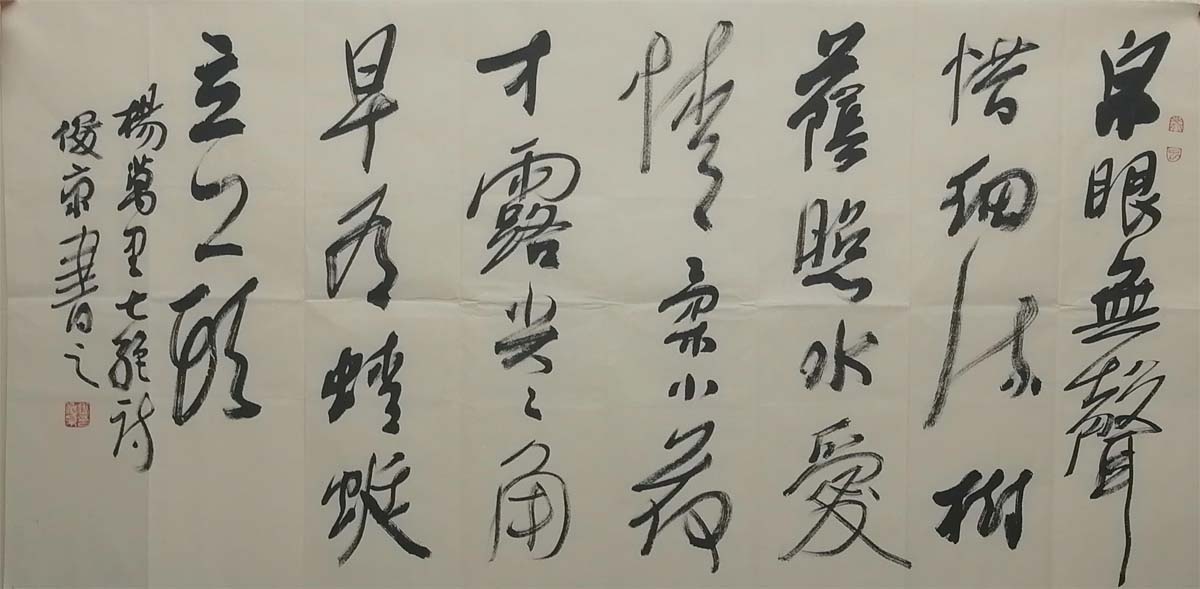 泉眼無聲
惜細流樹
蔭照水愛
情柔小荷
才露尖々角
早有蜻蜓
立上頭
楊萬里七絕詩
俊京書之